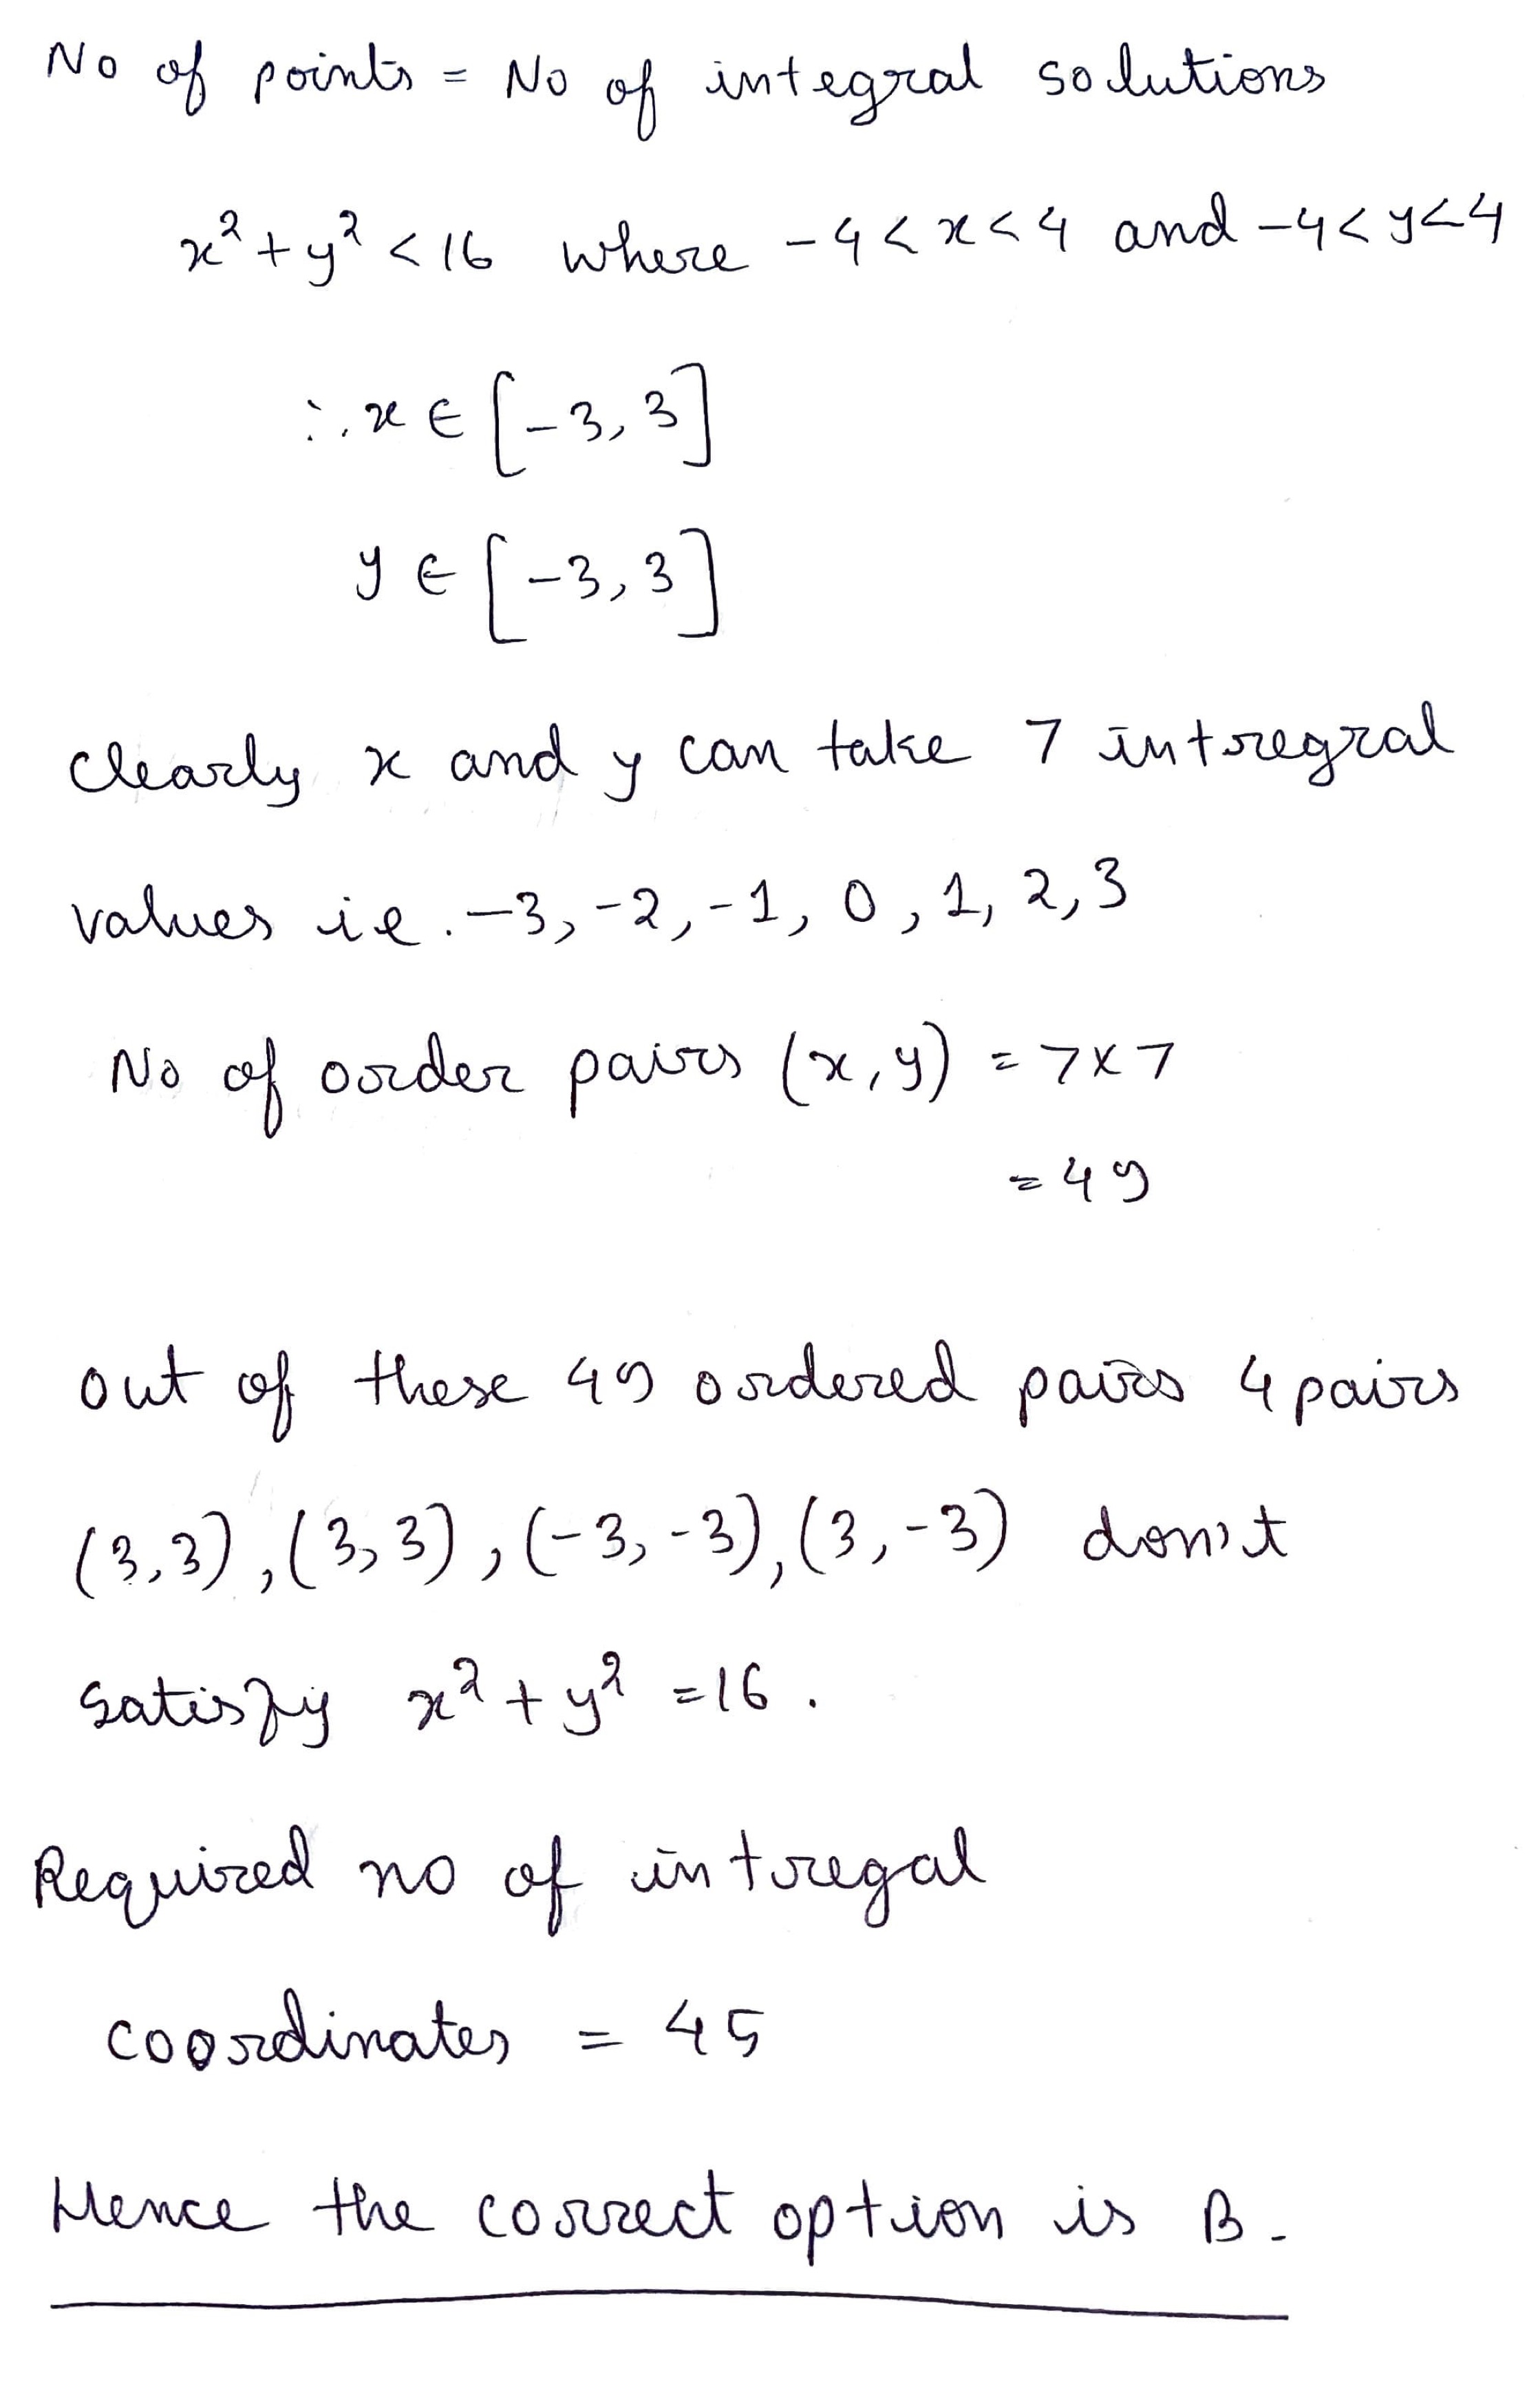 No of points = No of integral solutions
x² + y² < 16 where -4 < x < 4 and -4 < y < 4
∴ x ∈ [-3, 3]
y ∈ [-3, 3]
clearly x and y can take 7 intregral
values ie. -3, -2, -1, 0, 1, 2, 3
No of order pairs (x, y) = 7 x 7
= 49
out of these 49 ordered pairs 4 pairs
(3,3), (3,3), (-3,-3), (3,-3) don't
satisfy x² + y² = 16.
Required no of intregal
coordinates = 45
Hence the correct option is B.